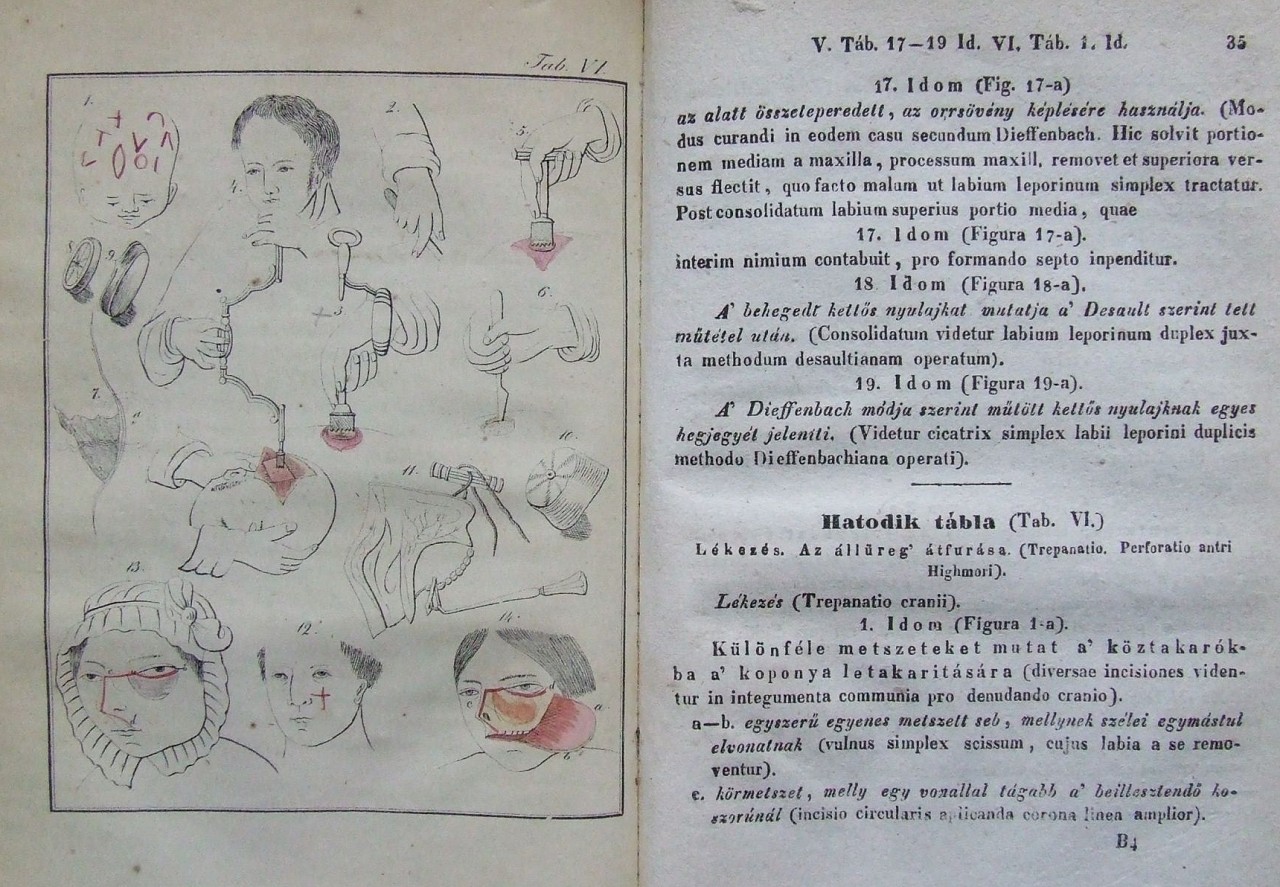 Tab. VI.
1.
2.
4.
5.
8.
9.
3
6.
7.
a
10.
11.
13.
12.
14.
c
a.
b.
V. Táb. 17—19 Id. VI. Táb. 1. Id.
35
17. Idom (Fig. 17-a)
az alatt összeteperedett, az orrsövény képlésére használja. (Mo-
dus curandi in eodem casu secundum Dieffenbach. Hic solvit portio-
nem mediam a maxilla, processum maxill, removet et superiora ver-
sus flectit, quo facto malum ut labium leporinum simplex tractatur.
Post consolidatum labium superius portio media, quae
17. Idom (Figura 17-a).
interim nimium contabuit, pro formando septo inpenditur.
18 Idom (Figura 18-a).
A' behegedt kettős nyulajkat mutatja a' Desault szerint tett
műtétel után. (Consolidatum videtur labium leporinum duplex jux-
ta methodum desaultianam operatum).
19. Idom (Figura 19-a).
A' Dieffenbach módja szerint műtött kettős nyulajknak egyes
hegjegyét jelenti. (Videtur cicatrix simplex labii leporini duplicis
methodo Dieffenbachiana operati).
Hatodik tábla (Tab. VI.)
Lékezés. Az állüreg' átfurása. (Trepanatio. Perforatio antri
Highmori).
Lékezés (Trepanatio cranii).
1. Idom (Figura 1-a).
Különféle metszeteket mutat a' köztakarók-
ba a' koponya letakaritására (diversae incisiones viden-
tur in integumenta communia pro denudando cranio).
a—b. egyszerű egyenes metszett seb, mellynek szélei egymástul
elvonatnak (vulnus simplex scissum, cujus labia a se remo-
ventur).
c. körmetszet, melly egy vonallal tágabb a' beillesztendő ko-
szorúnál (incisio circularis aplicanda corona linea amplior).
B4